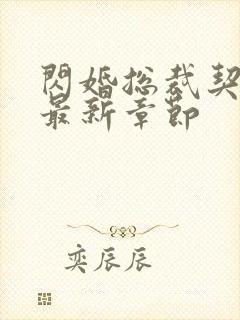 閃婚总裁契
最新章節
奕辰辰